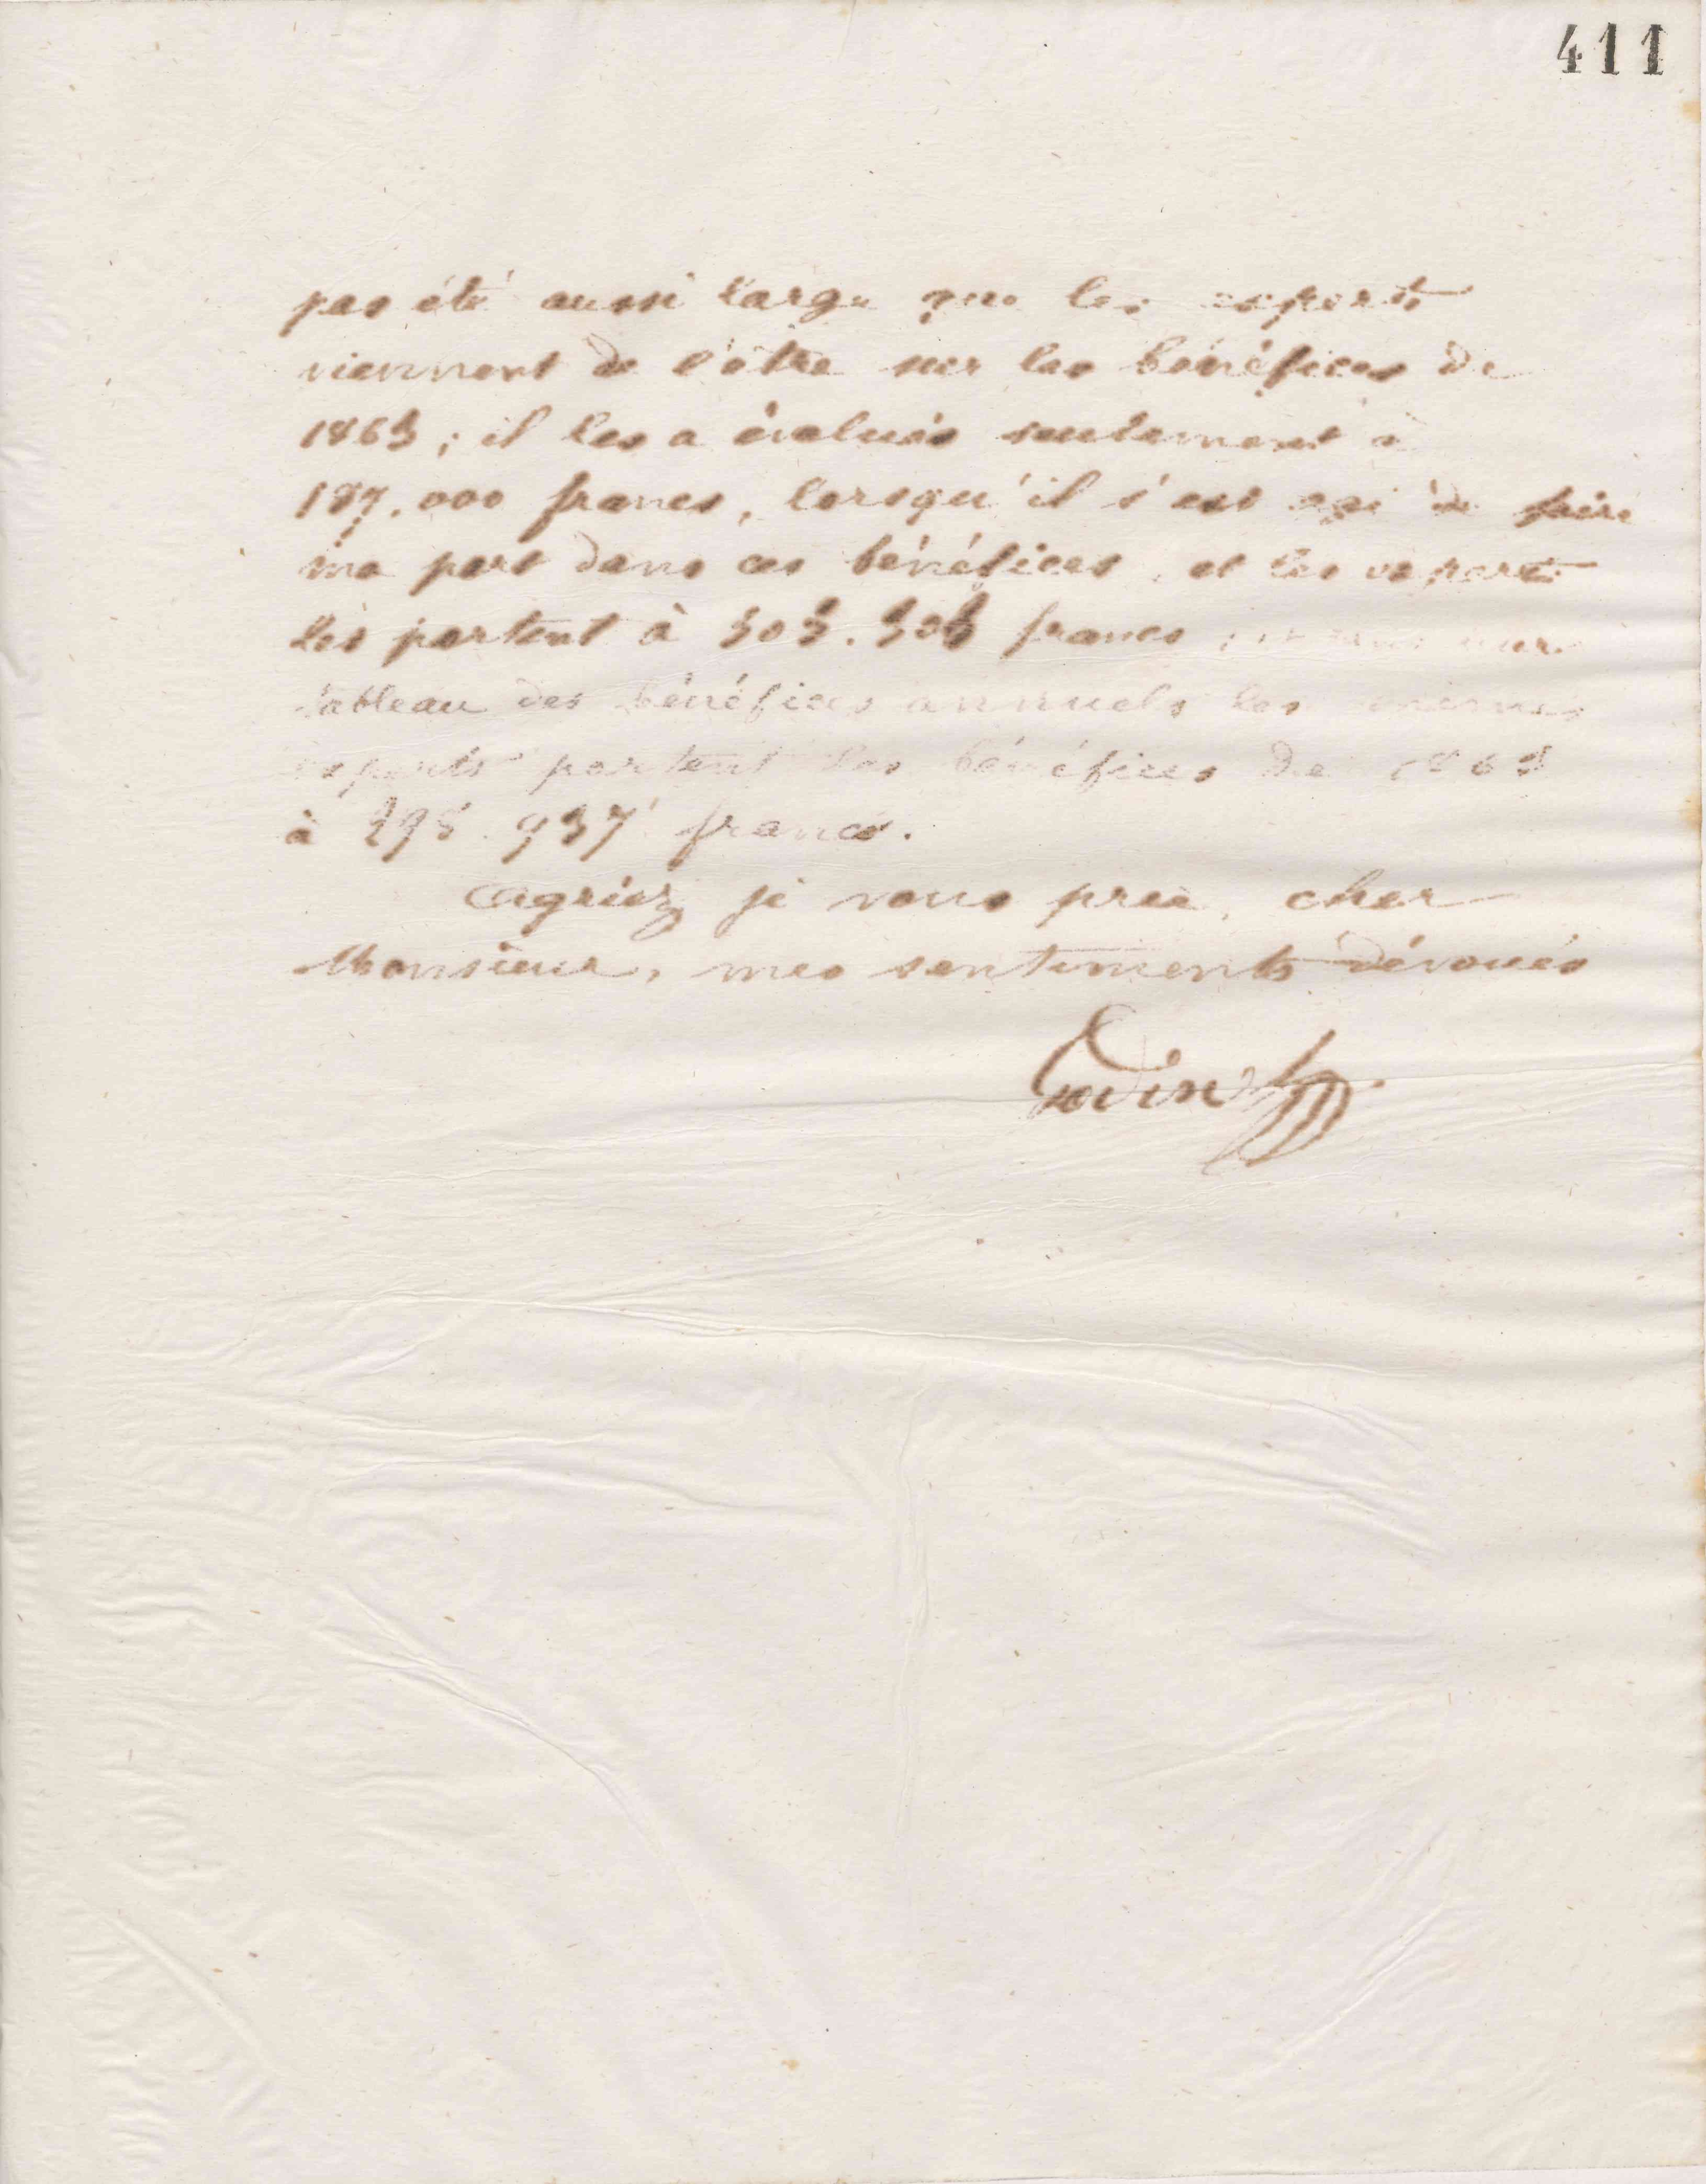 411
pas été aussi large que les experts
viennent de l'être sur les bénéfices de
1863 ; il les a évalués seulement à
187.000 francs, lorsqu'il s'est agi de faire
ma part dans ces bénéfices, et les experts
les portent à 303.303 francs ; et dans leur
tableau des bénéfices annuels les mêmes
experts portent les bénéfices de 1863
à 398.937 francs.
Agréez je vous prie, cher
Monsieur, mes sentiments dévoués
Godin